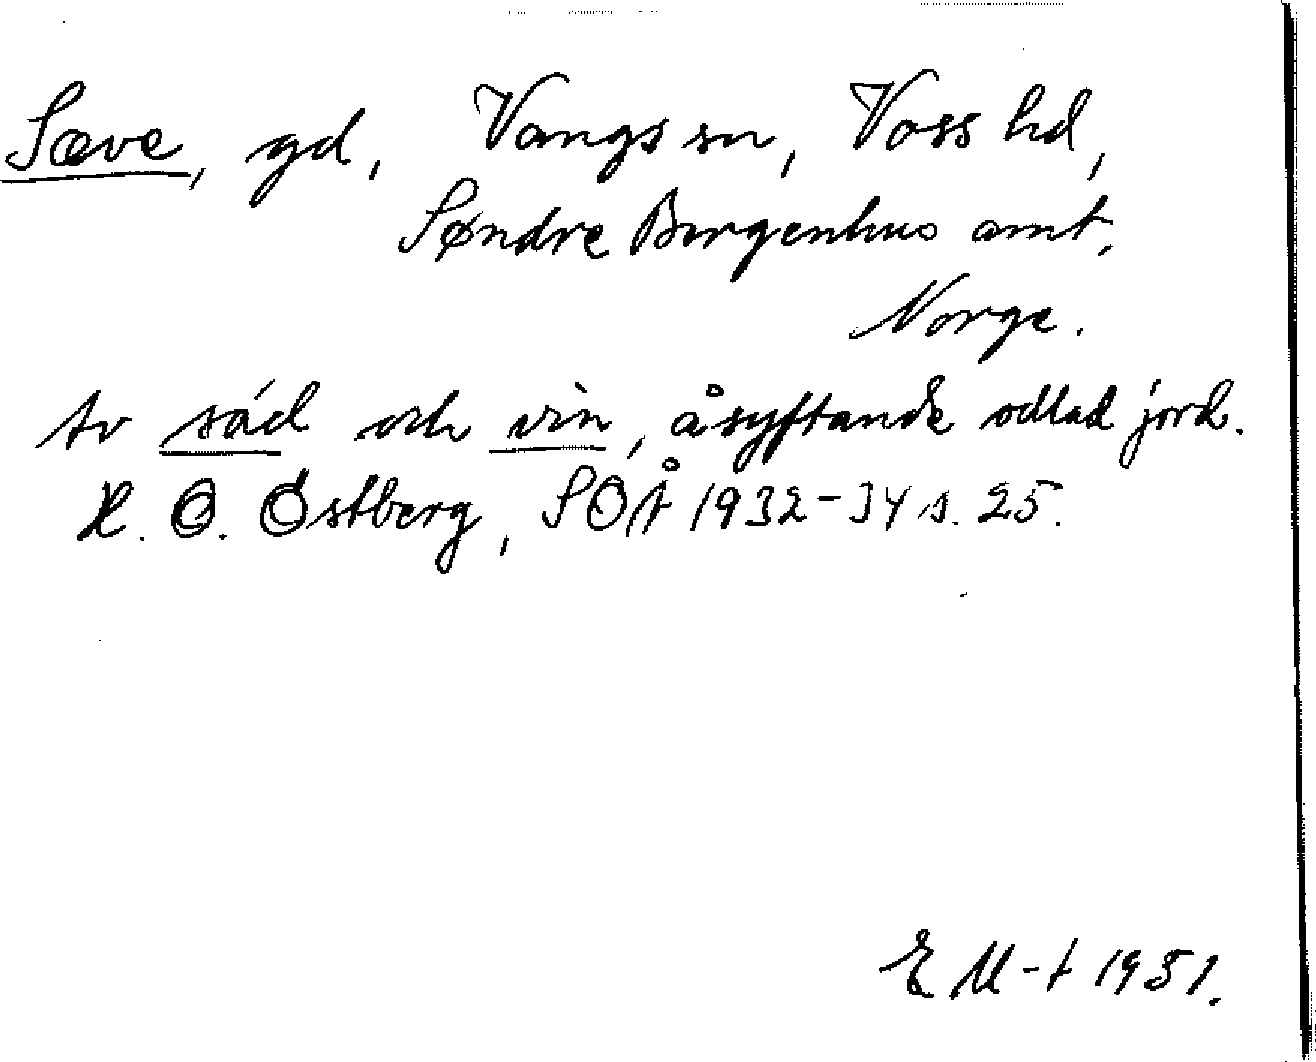 Sæve, gd, Vangs sn, Voss hd,
Søndre Bergenhus amt,
Norge.
Av sád och vin, åsyftande odlad jord.
K. O. Östberg, SOÅ 1932-34 s. 25.
E M-t 1951.